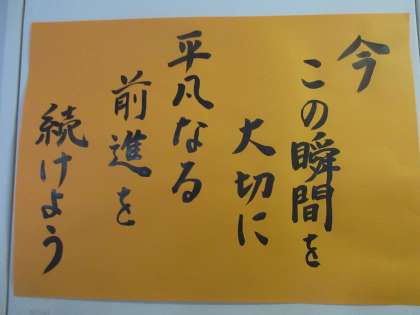 今
この瞬間を
大切に
平凡なる
前進を
続けよう